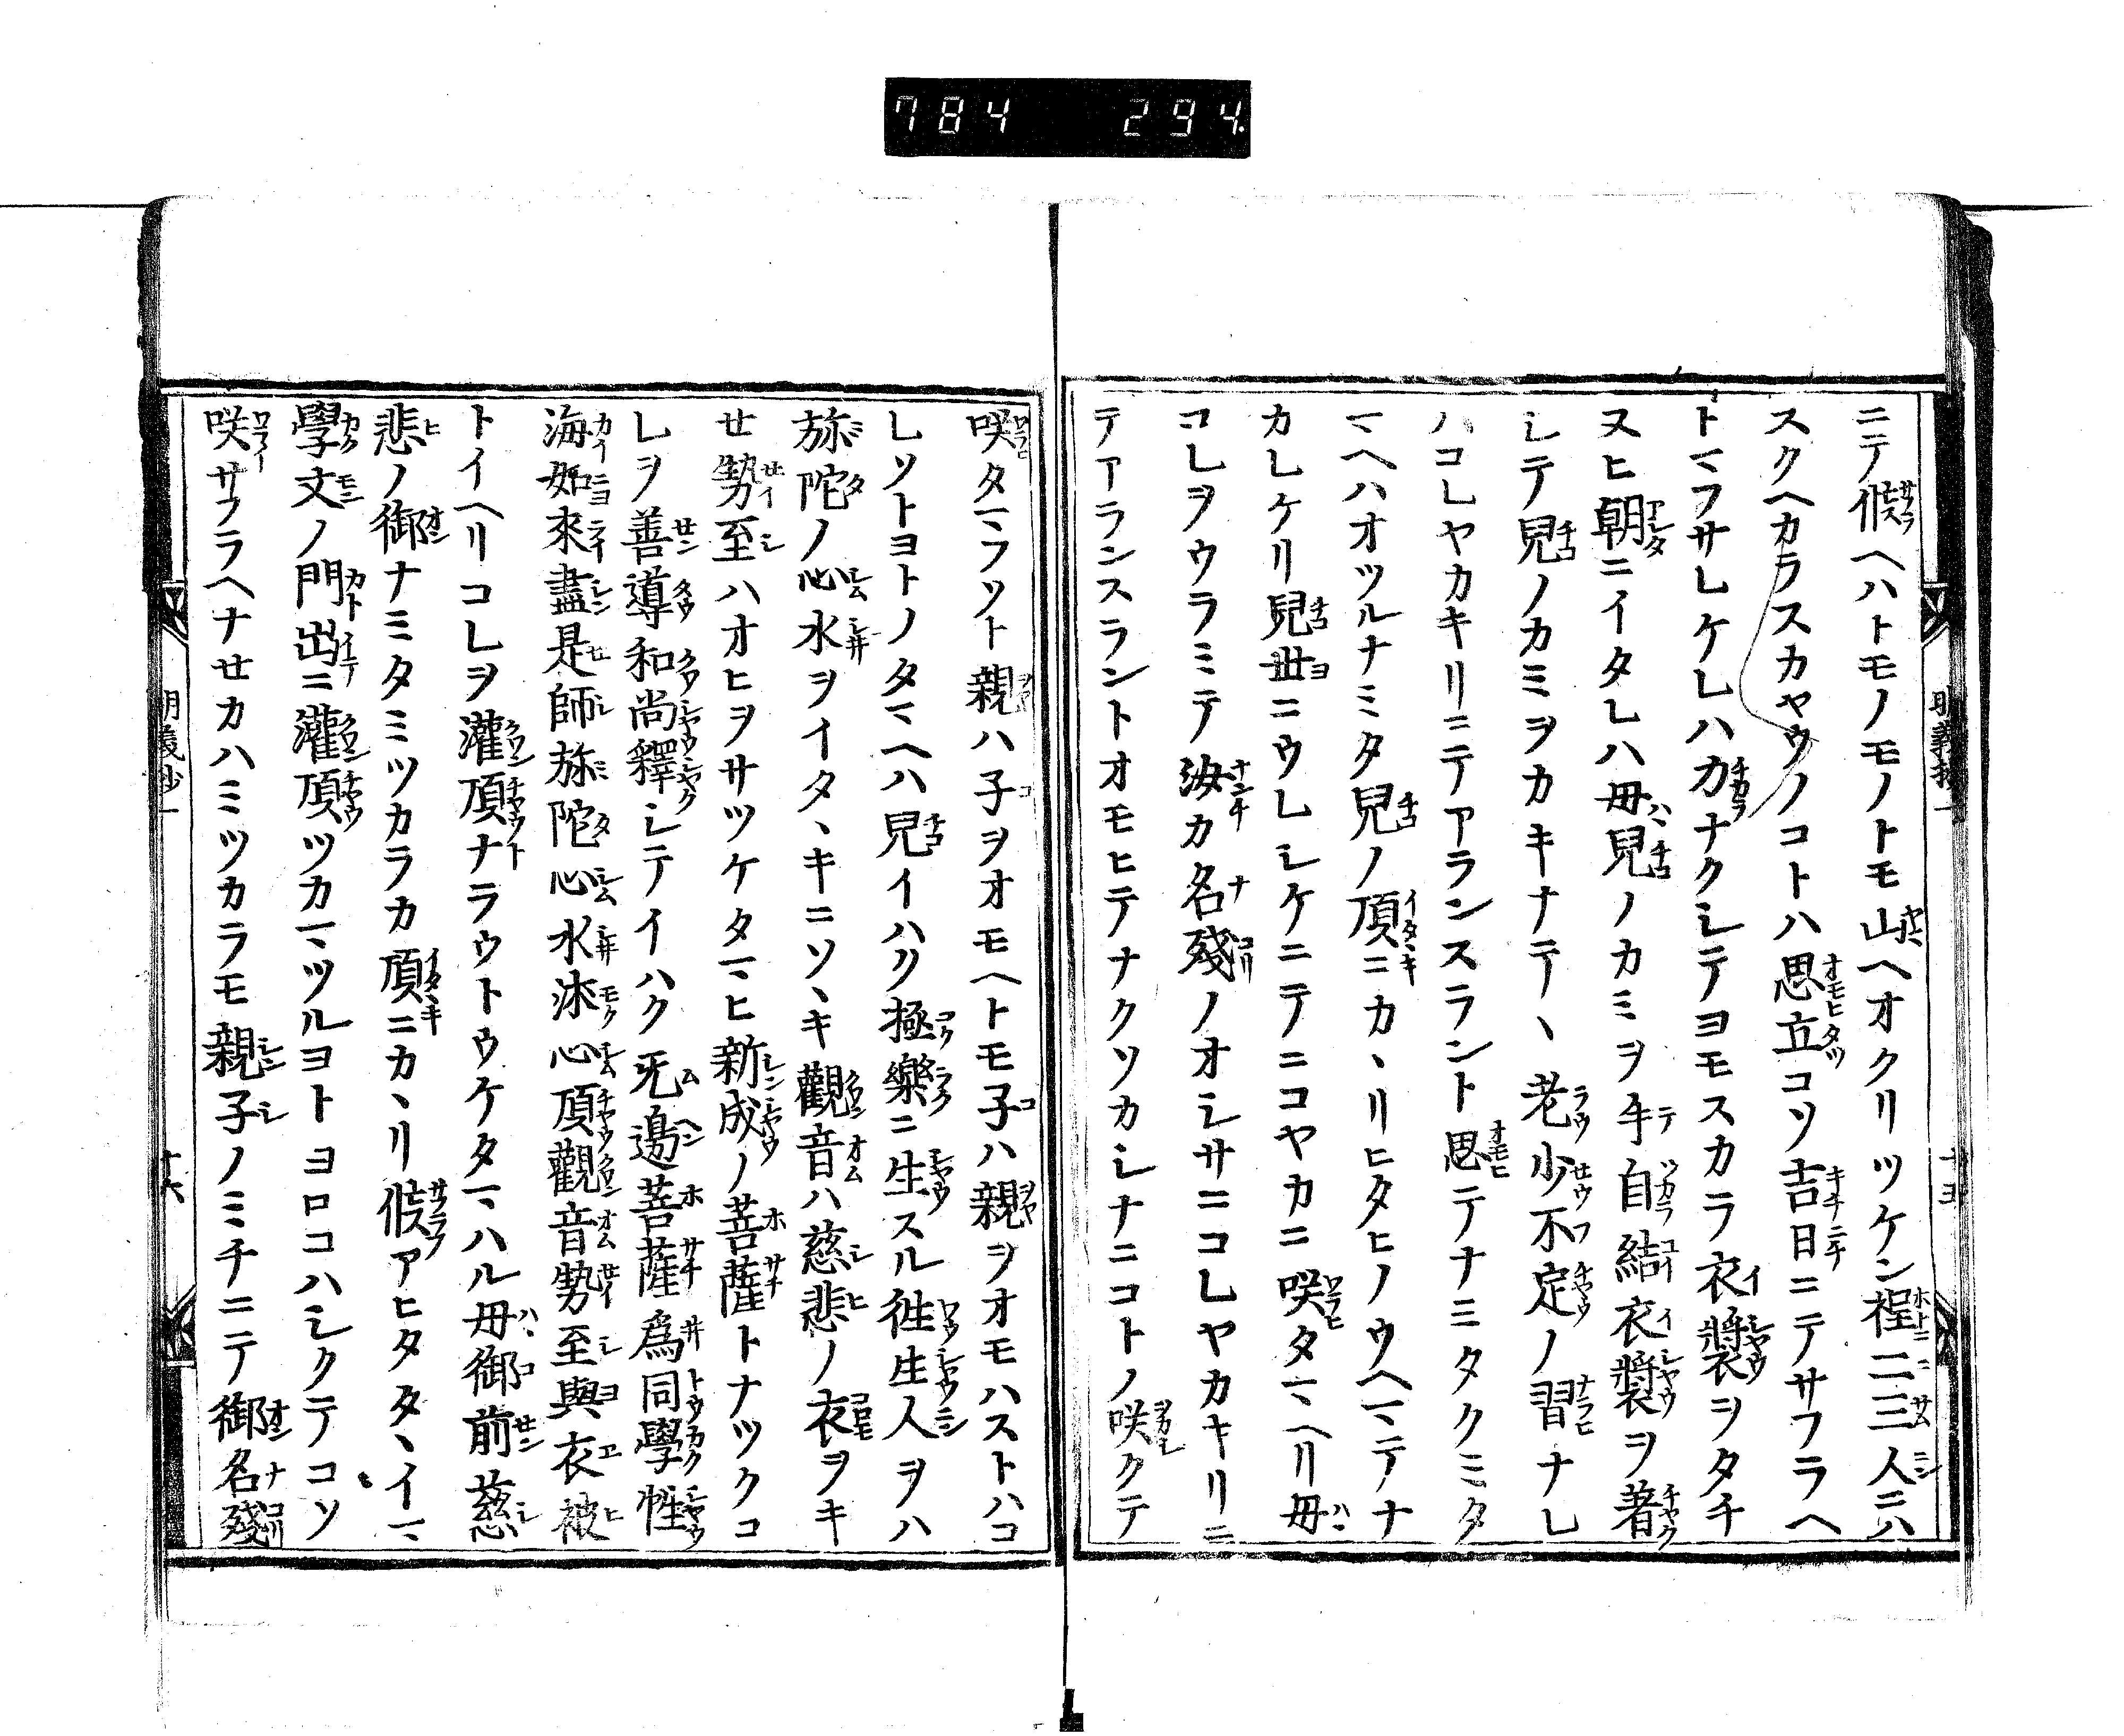 784 294.
ニテ候ヘハトモノモノトモ山ヘオクリツケン程二三人ニハ
スクヘカラスカヤウノコトハ思立コソ吉日ニテサフラヘ
トマフサレケレハ力ナクシテヨモスカラ衣裝ヲタチ
ヌヒ朝ニイタレハ母兒ノカミヲ手自結衣裝ヲ著
シテ兒ノカミヲカキナテヽ老少不定ノ習ナレ
ハコレヤカキリニテアランスラント思テナミタクミタ
マヘハオツルナミタ兒ノ頂ニカヽリヒタヒノウヘマテナ
カレケリ兒世ニウレシケニテニコヤカニ咲タマヘリ母
コレヲウラミテ汝カ名殘ノオシサニコレヤカキリニ
テアランスラントオモヒテナクソカシナニコトノ咲クテ
咲タマフソト親ハ子ヲオモヘトモ子ハ親ヲオモハストハコ
レソトヨトノタマヘハ兒イハク極樂ニ生スル徃生人ヲハ
旀陀ノ心水ヲイタヽキニソヽキ觀音ハ慈悲ノ衣ヲキ
セ勢至ハオヒヲサツケタマヒ新成ノ菩薩トナツクコ
レヲ善導和尚釋シテイハク无邊菩薩爲同學性
海如來盡是師旀陀心水沐心頂觀音勢至與衣被
トイヘリコレヲ灌頂ナラウトウケタマハル母御前慈
悲ノ御ナミタミツカラカ頂ニカヽリ候アヒタタヽイマ
學文ノ門出ニ灌頂ツカマツルヨトヨロコハシクテコソ
咲サフラヘナセカハミツカラモ親子ノミチニテ御名殘
明義抄一
十五
明義抄一
十六